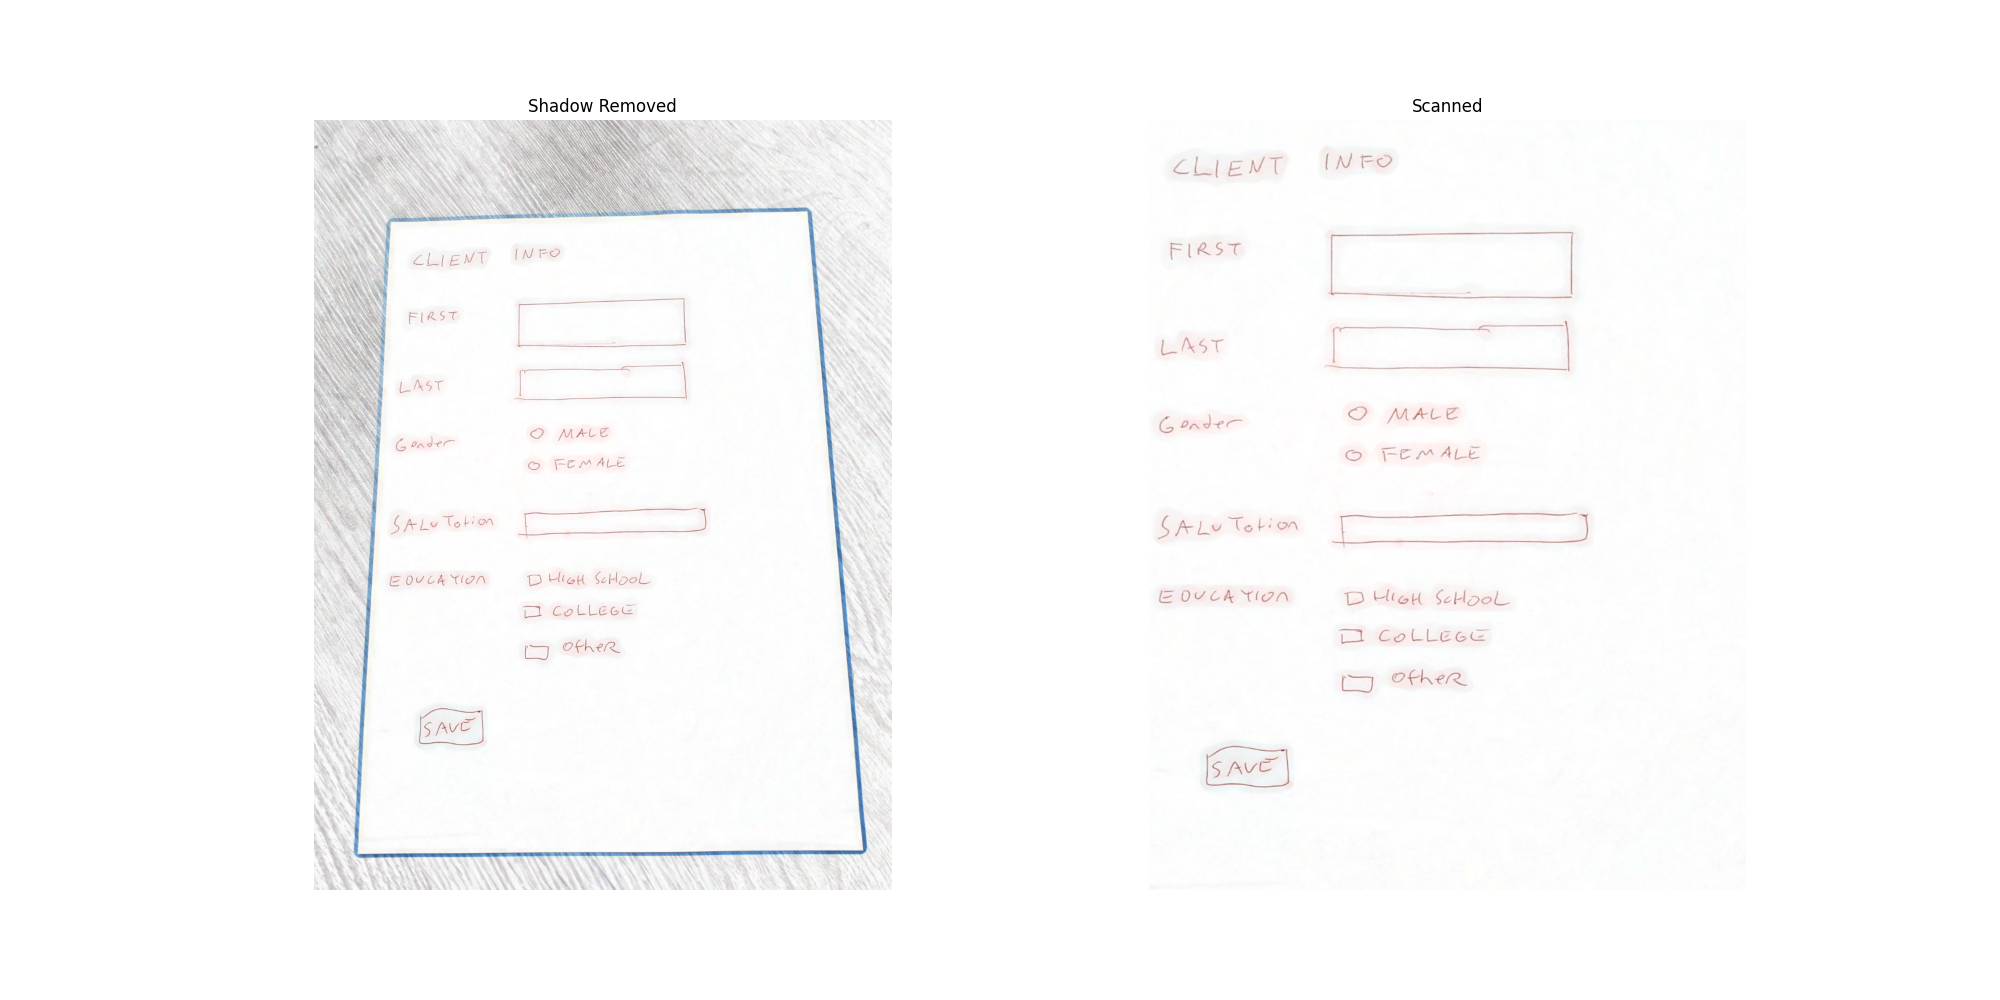 Shadow Removed
CLIENT INFO
FIRST
LAST
Gender
MALE
FEMALE
SALuTation
EDUCATION
HIGH ScHOOL
COLLEGE
OtheR
SAVE
Scanned
CLIENT INFO
FIRST
LAST
Gender
MALE
FEMALE
SALuTation
EDUCATION
HIGH ScHOOL
COLLEGE
OtheR
SAVE